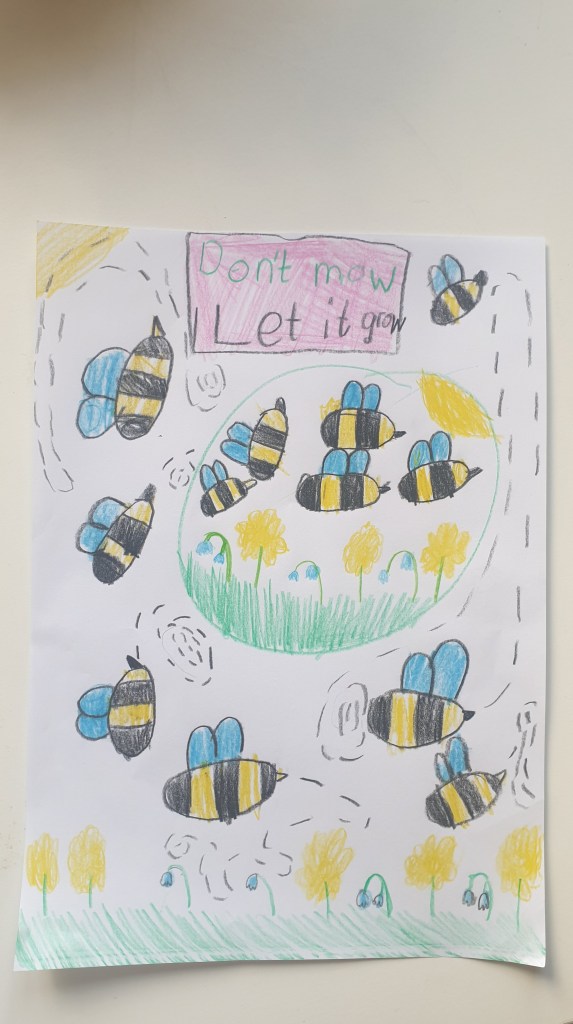 Don't mow
Let it grow